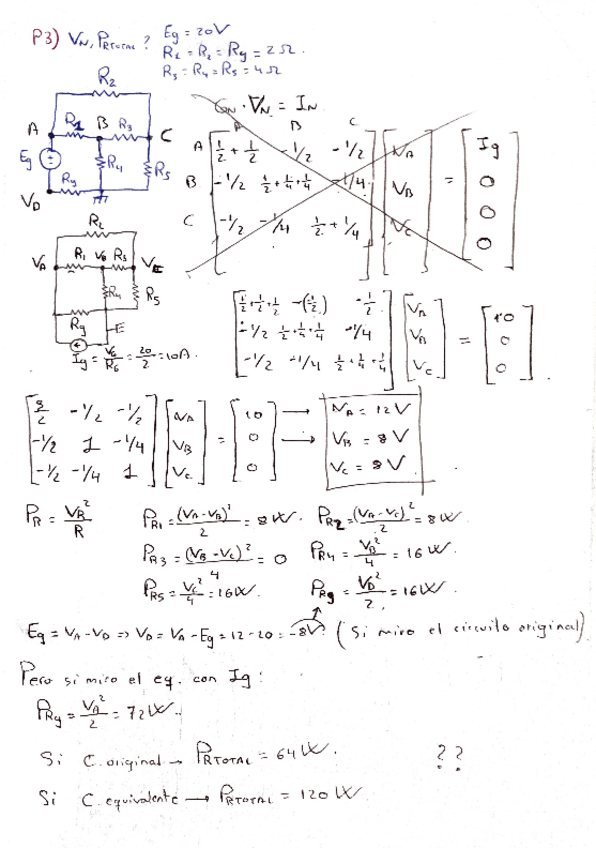 P3) VN, PRTOTAL ? Eg = 20V
R1 = R2 = Rg = 2 Ω.
R3 = R4 = R5 = 4Ω
R2
A R1 B R3 C
Eg R4 R5
VD Rg
GN · VN = IN
A B C
A 1/2 + 1/2 -1/2 -1/2 VA Ig
B -1/2 1/2 + 1/4 + 1/4 -1/4 VB = 0
C -1/2 -1/4 1/2 + 1/4 VC 0
0
R2
VA R1 VB R3 VC
R4 R5
Rg
Ig = VG/RG = 20/2 = 10A.
1/2 + 1/2 + 1/2 -(1/2) -1/2 VA 10
-1/2 1/2 + 1/4 + 1/4 -1/4 VB = 0
-1/2 -1/4 1/2 + 1/4 + 1/4 VC 0
3/2 -1/2 -1/2 VA 10 → VA = 12V
-1/2 1 -1/4 VB = 0 → VB = 8V
-1/2 -1/4 1 VC 0 VC = 8V.
PR = VR²/R PR1 = (VA-VB)²/2 = 8W. PR2 = (VA-VC)²/2 = 8W.
PR3 = (VB-VC)²/4 = 0 PR4 = VB²/4 = 16W.
PR5 = VC²/4 = 16W. PRg = VD²/2 = 16W.
Eg = VA - VD => VD = VA - Eg = 12 - 20 = -8V. (Si miro el circuito original)
Pero si miro el eq. con Ig:
PRg = VA²/2 = 72W.
Si C. original → PRTOTAL = 64W. ??
Si C. equivalente → PRTOTAL = 120W